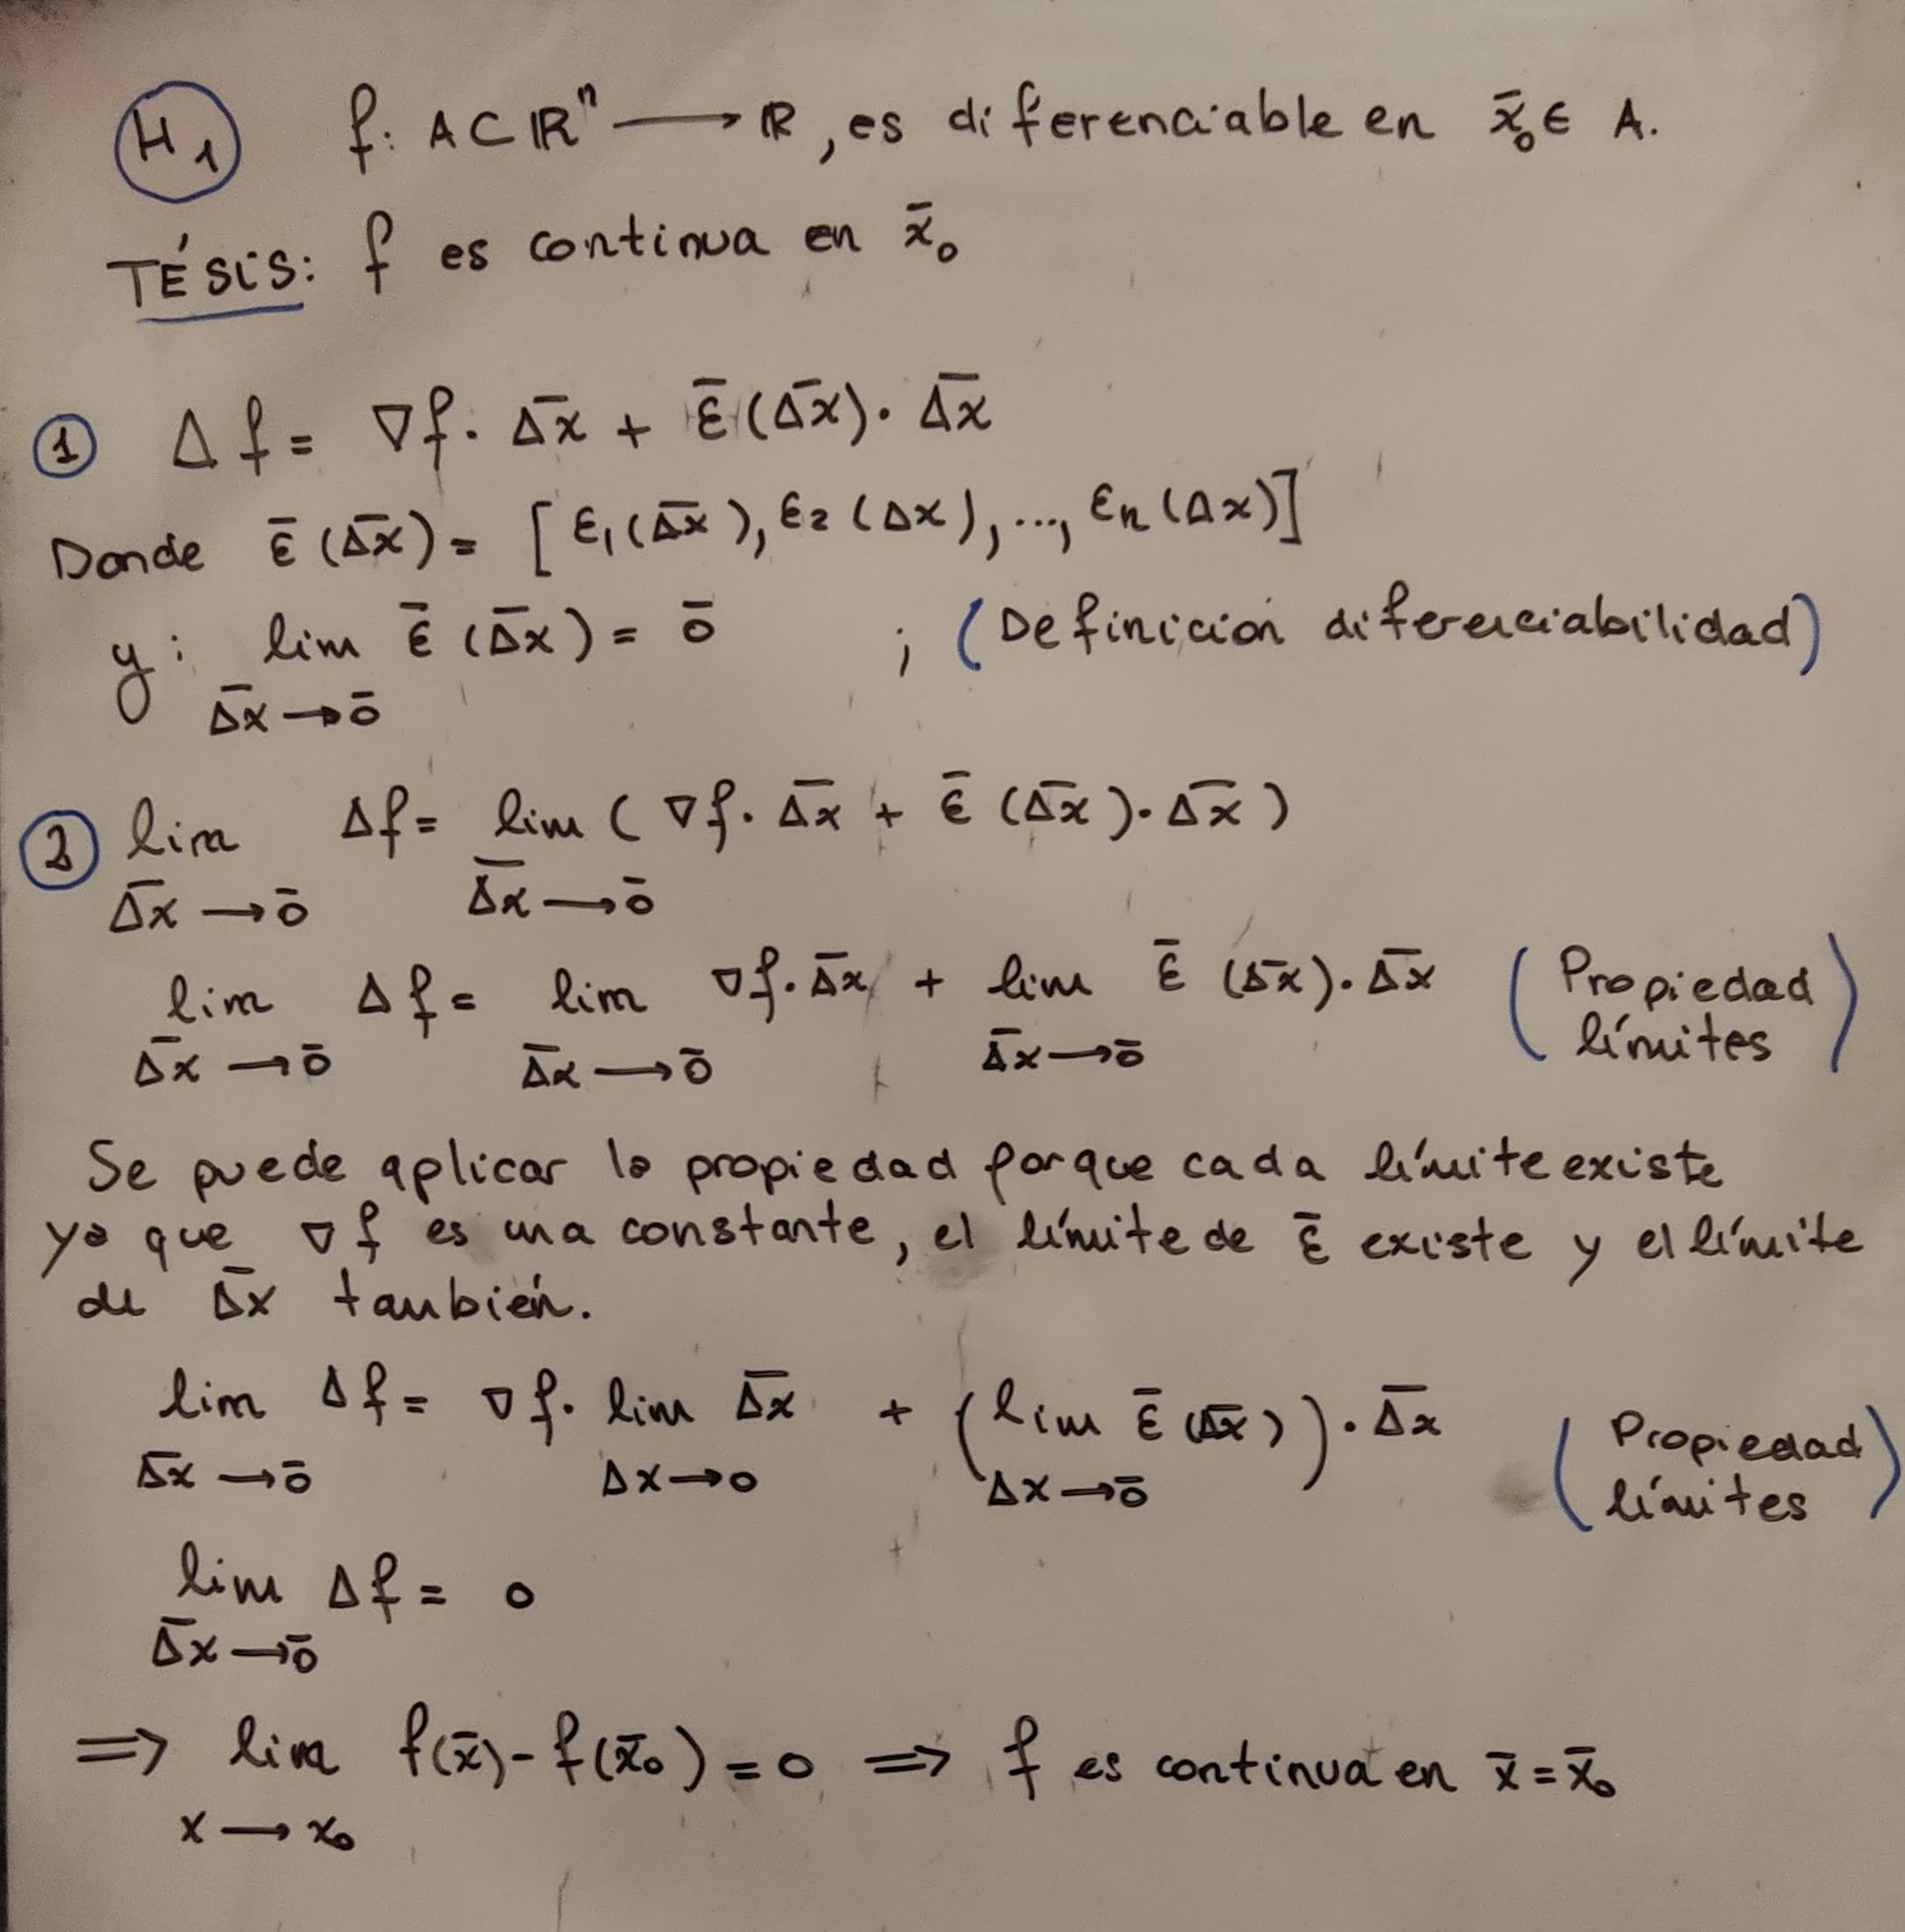 H₁ f: A ⊂ ℝⁿ ⟶ ℝ, es diferenciable en x̄₀ ∈ A.
TÉSIS: f es continua en x̄₀
① Δf = ∇f · Δ̄x̄ + ε̄(Δ̄x̄) · Δ̄x̄
Donde ε̄(Δ̄x̄) = [ε₁(Δ̄x̄), ε₂(Δx), ..., εₙ(Δx)]
y: lim ε̄(Δ̄x̄) = ō ; (Definición diferenciabilidad)
Δ̄x̄ → ō
② lim Δf = lim (∇f · Δ̄x̄ + ε̄(Δ̄x̄) · Δ̄x̄)
Δ̄x̄ → ō Δ̄x̄ → ō
lim Δf = lim ∇f · Δ̄x̄ + lim ε̄(Δ̄x̄) · Δ̄x̄ (Propiedad
Δ̄x̄ → ō Δ̄x̄ → ō Δ̄x̄ → ō límites)
Se puede aplicar la propiedad porque cada límite existe
ya que ∇f es una constante, el límite de ε̄ existe y el límite
de Δ̄x̄ también.
lim Δf = ∇f · lim Δ̄x̄ + (lim ε̄(Δ̄x̄)) · Δ̄x̄ (Propiedad
Δ̄x̄ → ō Δx → o Δx → ō límites)
lim Δf = o
Δ̄x̄ → ō
⟹ lim f(x̄) - f(x̄₀) = o ⟹ f es continua en x̄ = x̄₀
x → x₀